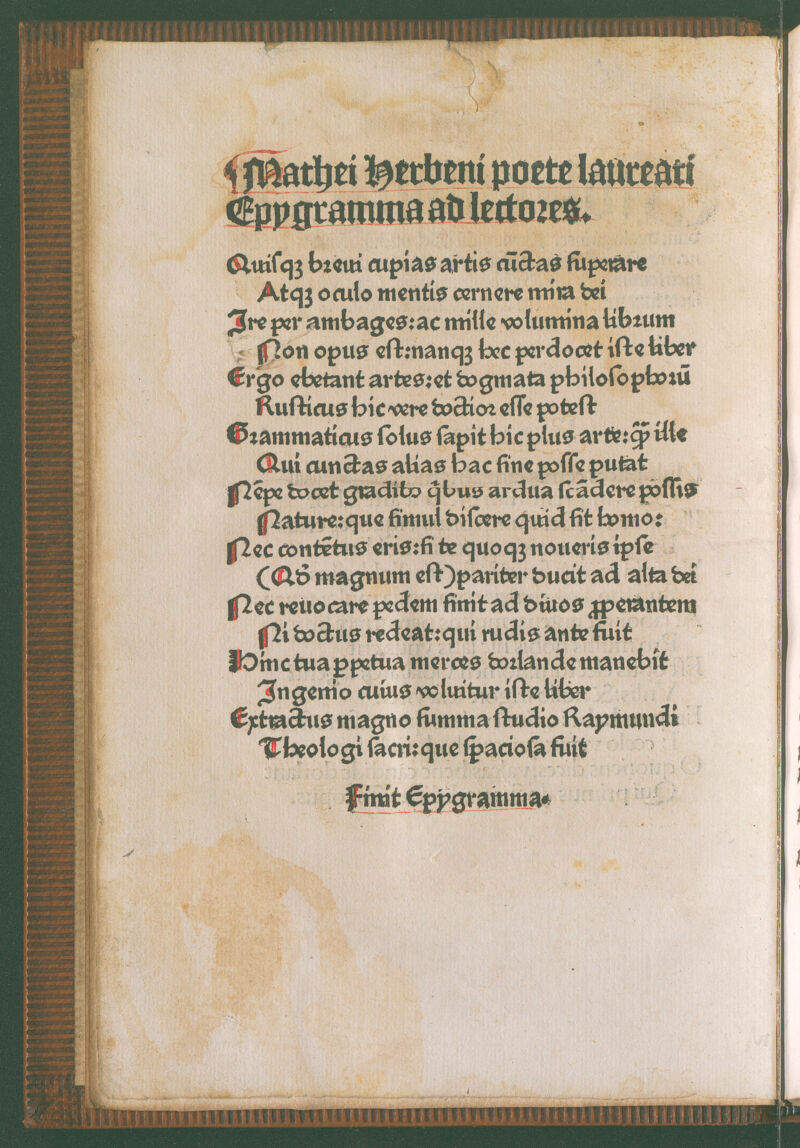 ¶ Mathei Herbeni poete laureati
Epygramma ad lectores.
Quisqꝫ breui cupias artis cūctas superare
Atqꝫ oculo mentis cernere mira dei
Ire per ambages: ac mille volumina librum
Non opus est: nanqꝫ hec perdocet iste liber
Ergo ebetant artes: et dogmata philosophorū
Rusticus hic vere doctior esse potest
Grammaticus solus sapit hic plus arte: qͣꝫ ille
Qui cunctas alias hac sine posse putat
Nēpe docet gradibꝰ qͥbus ardua scādere possis
Nature: que simul discere quid sit homo:
Nec contētus eris: si te quoqꝫ noueris ipse
(Qđ magnum est) pariter ducit ad alta dei
Nec reuocare pedem sinit ad diuos ꝓperantem
Ni doctus redeat: qui rudis ante fuit
Hinc tua ꝑpetua merces dorlande manebit
Ingenio cuius voluitur iste liber
Extractus magno summa studio Raymundi
Theologi sacri: que spaciosa fuit
Finit Epygramma.